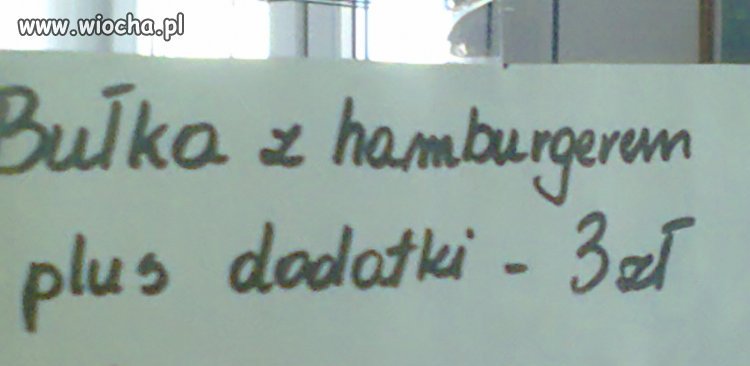 www.wiocha.pl
Bułka z hamburgerem
plus dodatki - 3 zł